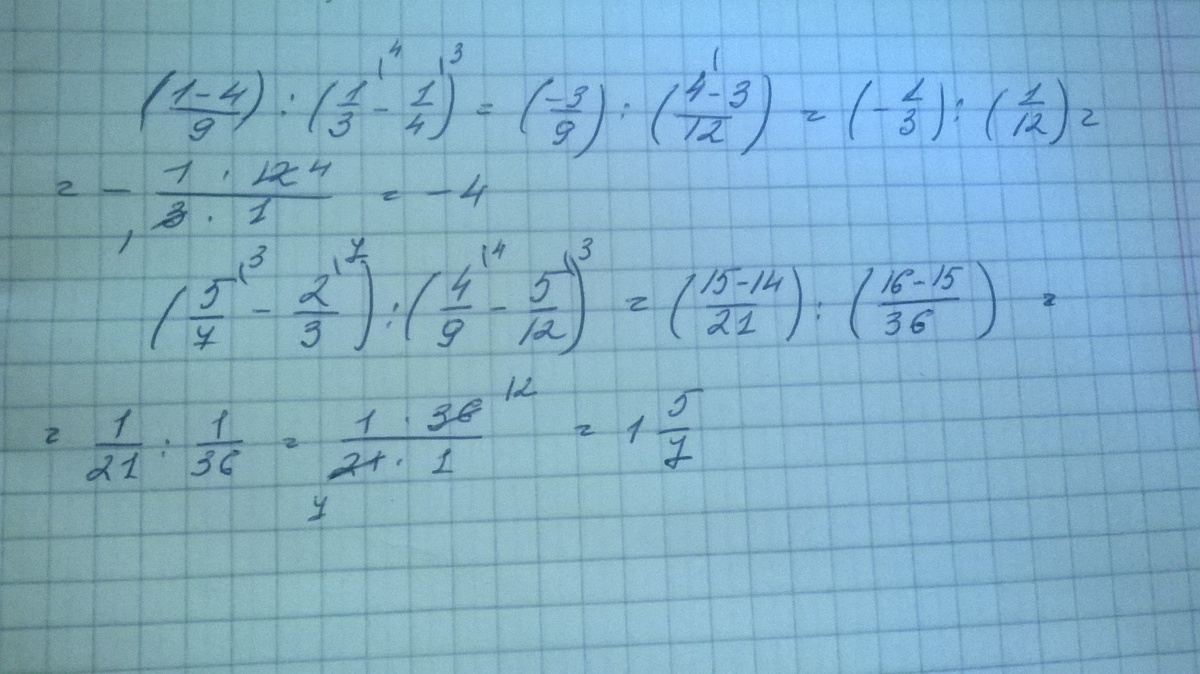 ((1-4)/9) : (1/3 (4 - 1/4 (3) = (-3/9) : ((4-3)/12) = (-1/3) : (1/12) =
= - (1 · 12 4)/(3 · 1) = -4
(5/7 (3 - 2/3 (7) : (4/9 (4 - 5/12 (3) = ((15-14)/21) : ((16-15)/36) =
= 1/21 : 1/36 = (1 · 36 12)/(21 7 · 1) = 1 5/7